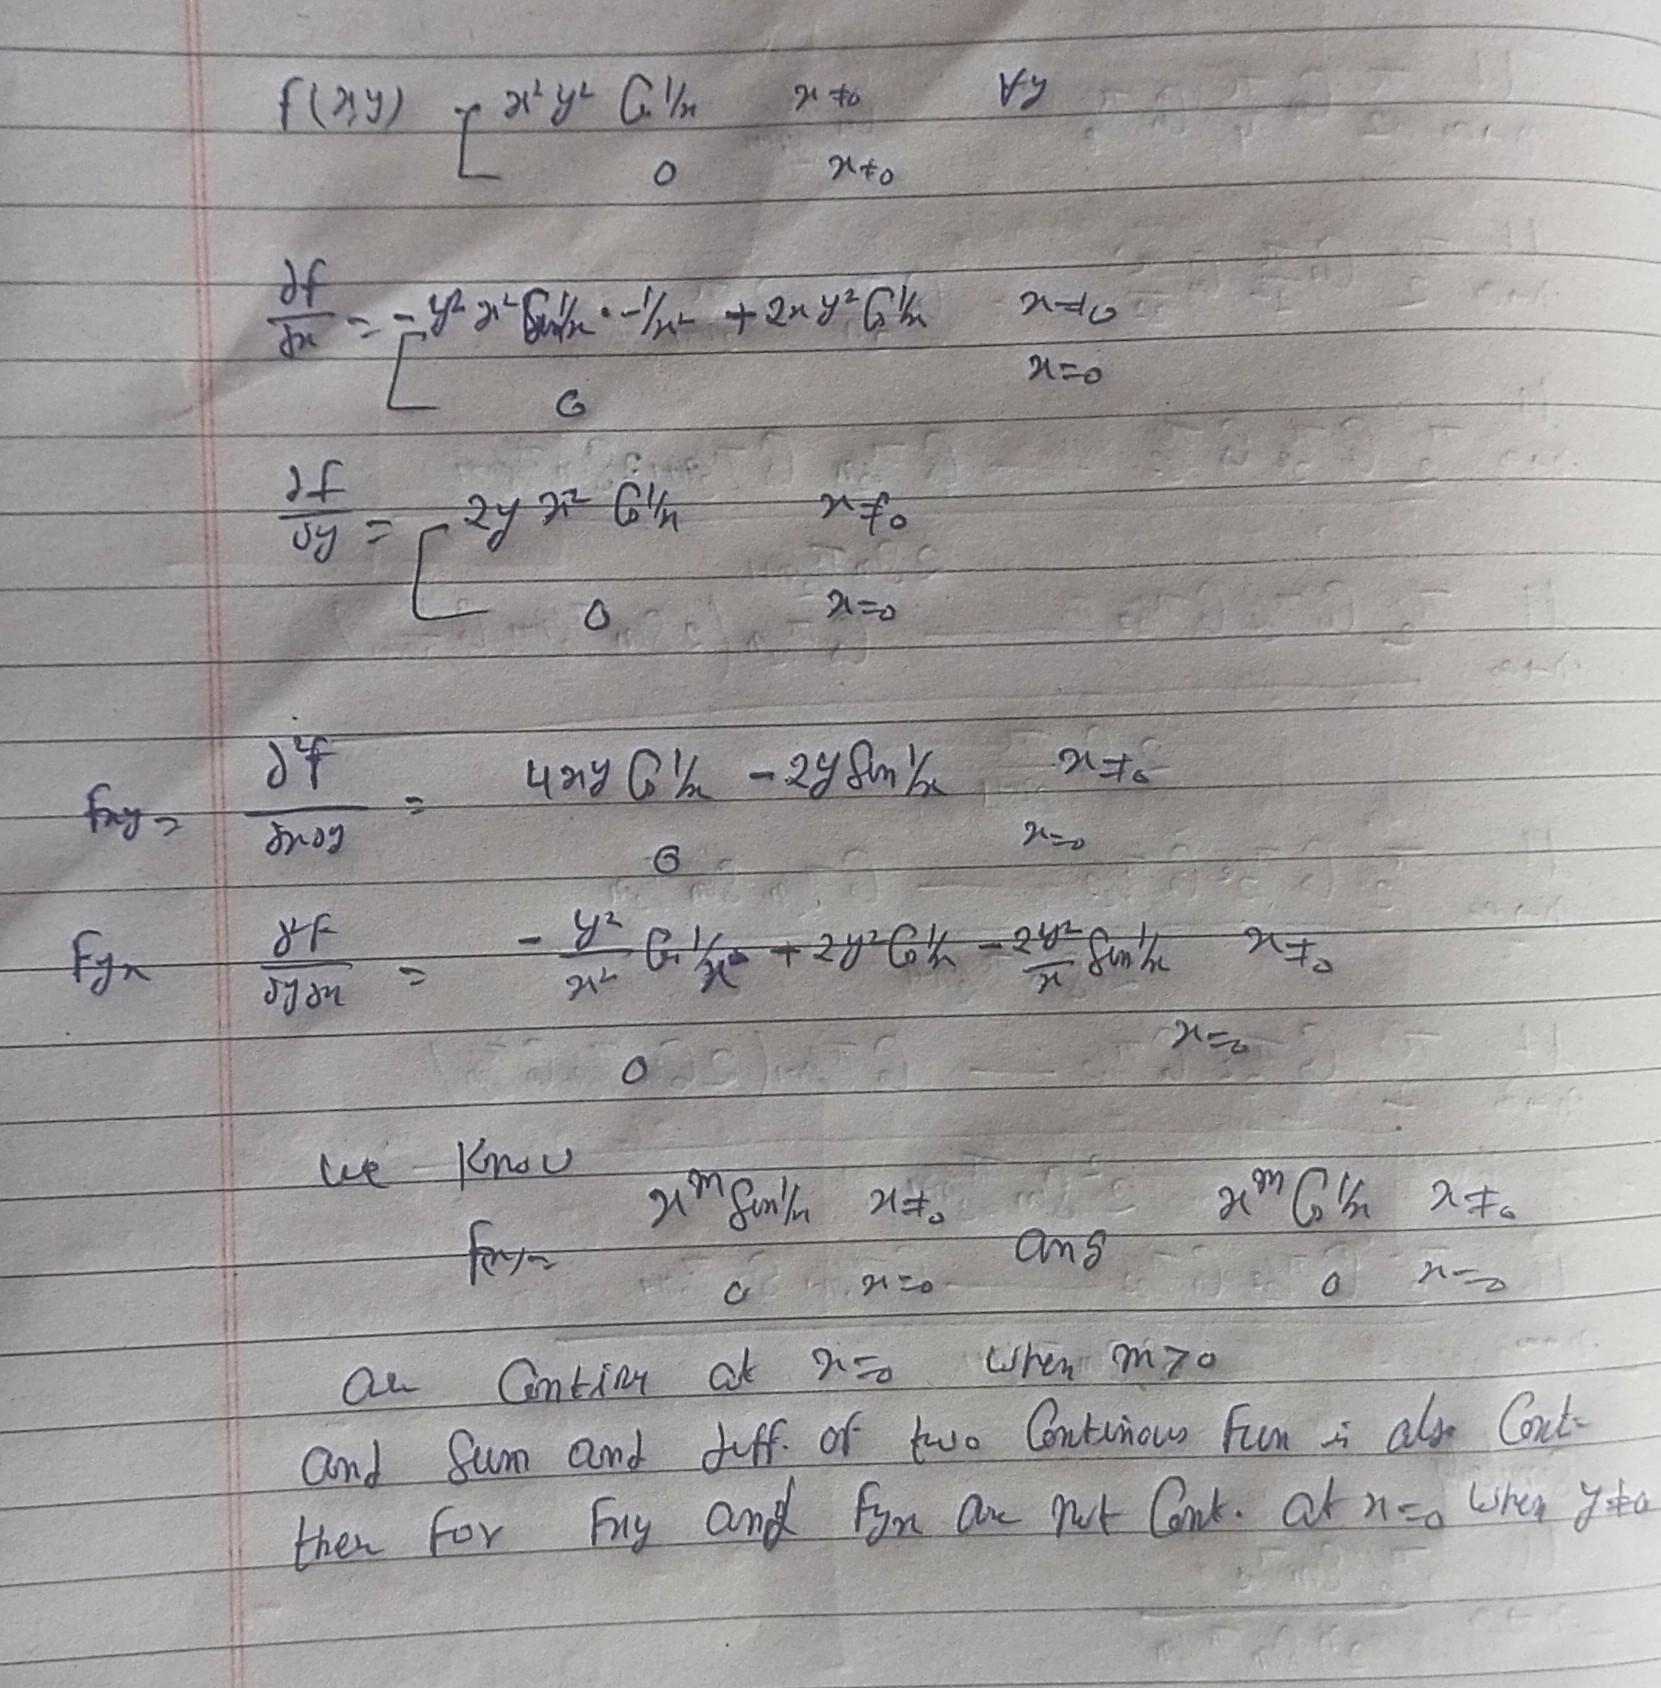 f(x,y) = [ x² y² Cos 1/x   x≠0   ∀y
0   x≠0
∂f/∂x = [ -y² x² Sin 1/x · -1/x² + 2x y² Cos 1/x   x≠0
0   x=0
∂f/∂y = [ 2y x² Cos 1/x   x≠0
0   x=0
fxy = ∂²f/∂x∂y = 4xy Cos 1/x - 2y Sin 1/x   x≠0
0   x=0
Fyx ∂²f/∂y∂x = - y²/x² Cos 1/x + 2y² Cos 1/x - 2y²/x Sin 1/x   x≠0
0   x=0
we Know
x^m Sin 1/x   x≠0   x^m Cos 1/x   x≠0
f(x)=   0   x=0   and   0   x=0
are Continu at x=0 when m>0
and Sum and diff. of two Continous Fun is also Cont-
then for Fxy and Fyx are not Cont. at x=0 when y≠0